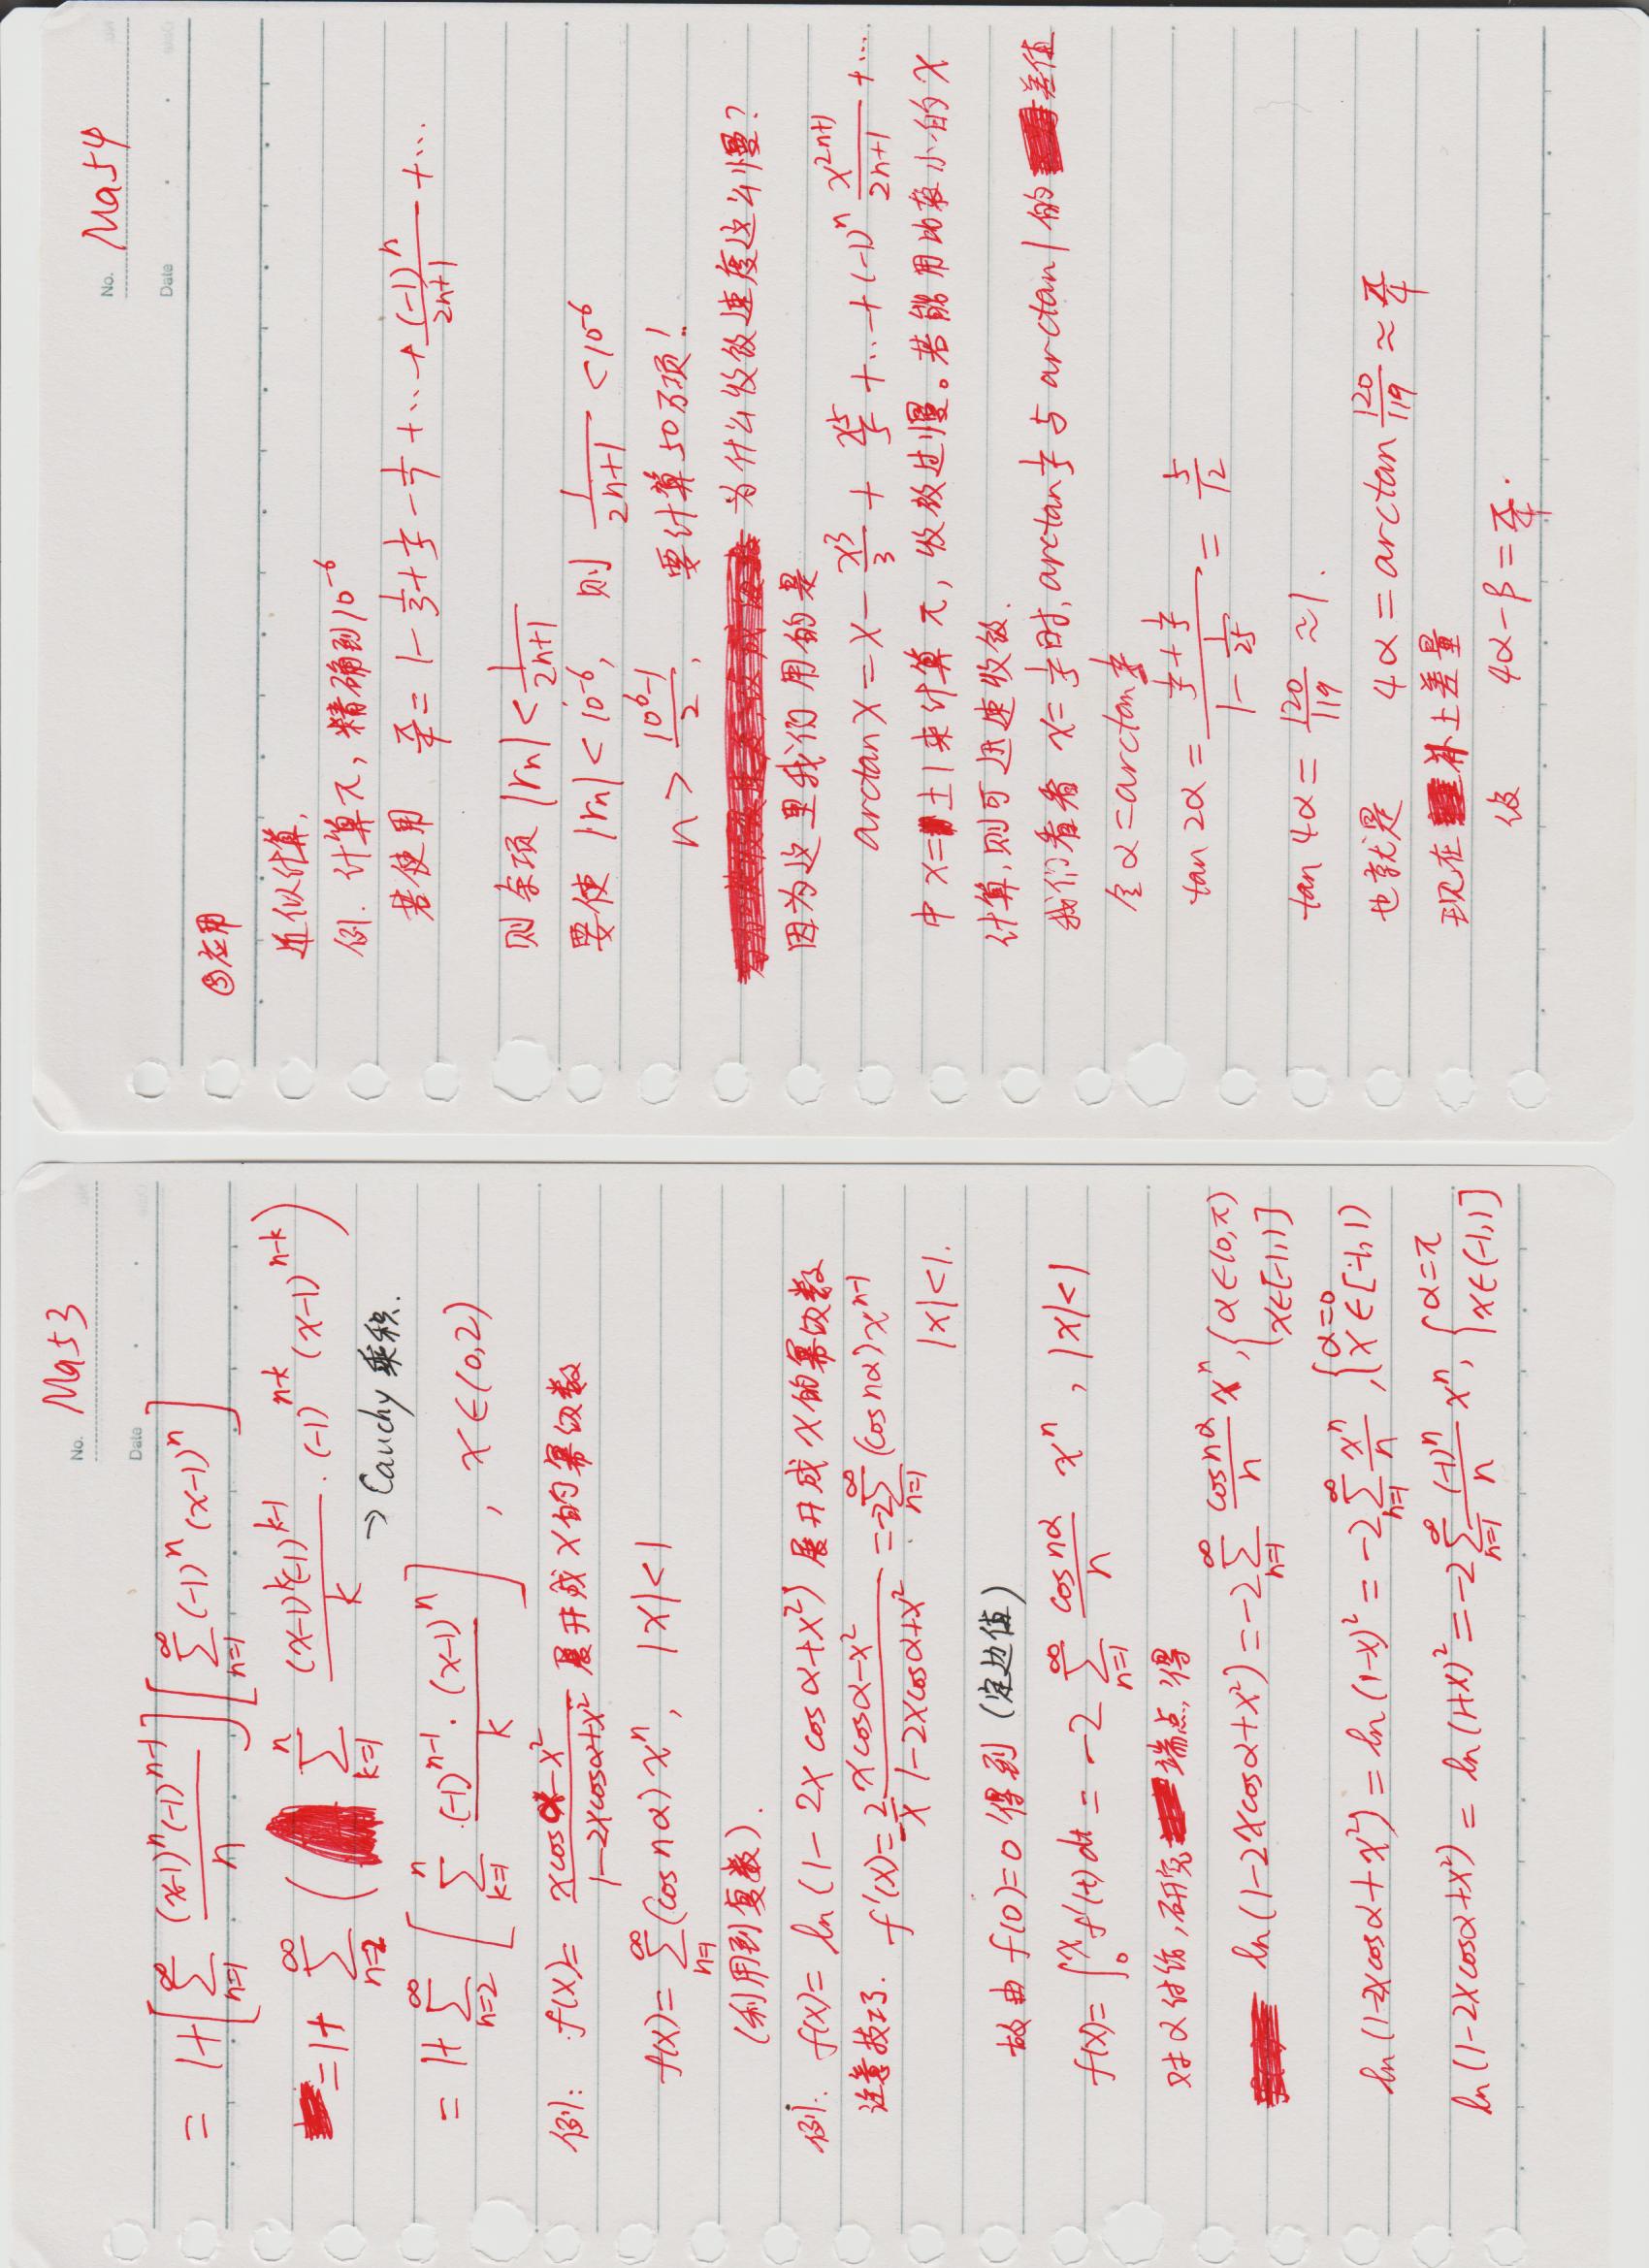 No. Ma53
Date
= 1+[∑_{n=1}^{∞} (x-1)^n(-1)^{n-1}/n][∑_{n=1}^{∞}(-1)^n(x-1)^n]
=1+ ∑_{n=2}^{∞} ( ∑_{k=1}^{n} (x-1)^k(-1)^{k-1}/k · (-1)^{n-k} (x-1)^{n-k})
→ Cauchy 乘积.
= 1+ ∑_{n=2}^{∞} [ ∑_{k=1}^{n} (-1)^{n-1}·(x-1)^n/k ] , x∈(0,2)
例: f(x)= (xcosα-x²)/(1-2xcosα+x²) 展开成x的幂级数
f(x)= ∑_{n=1}^{∞}(cos nα) x^n, |x|<1
(利用到复数).
例: f(x)= ln(1-2x cosα+x²) 展开成x的幂级数
注意技巧. f'(x)=-2/x (xcosα-x²)/(1-2xcosα+x²) =-2∑_{n=1}^{∞}(cos nα)x^{n-1}
|x|<1.
故由 f(0)=0 得到 (定边值)
f(x)= ∫_0^x f'(t)dt = -2 ∑_{n=1}^{∞} cos nα/n x^n , |x|<1
对α讨论,研究端点,得
ln(1-2xcosα+x²)=-2∑_{n=1}^{∞} cos nα/n x^n, {α∈(0,π) x∈[-1,1]
ln(1-2xcosα+x²) = ln(1-x)² = -2∑_{n=1}^{∞} x^n/n , {α=0 x∈[-1,1)
ln(1-2xcosα+x²) = ln(1+x)² =-2∑_{n=1}^{∞} (-1)^n/n x^n, {α=π x∈(-1,1]
No. Ma54
Date
③应用
近似计算,
例. 计算π, 精确到10^{-6}
若使用 π/4 = 1-1/3+1/5-1/7+…+(-1)^n/(2n+1)+…
则余项 |r_n|<1/(2n+1)
要使 |r_n|<10^{-6}, 则 1/(2n+1) <10^{-6}
n > (10^6-1)/2, 要计算50万项!
为什么收敛速度这么慢?
因为这里我们用的是
arctan x = x - x³/3 + x⁵/5 +…+(-1)^n x^{2n+1}/(2n+1) +…
中x=±1来计算π, 收敛过慢。若能用比较小的x
计算,则可迅速收敛.
我们看看 x=1/5时, arctan 1/5 与 arctan 1 的差值
令α=arctan 1/5
tan 2α = (1/5+1/5)/(1-1/25) = 5/12
tan 4α = 120/119 ≈1.
也就是 4α = arctan 120/119 ≈ π/4
现在补上差量
设 4α-β = π/4.